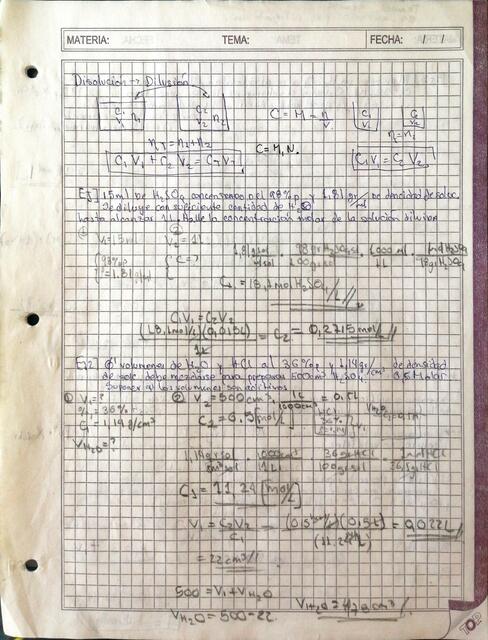 MATERIA: TEMA: FECHA: / /
Disolución → Dilusión
C1 V1 n1 C2 V2 n2 C = M = n/V C1 V1 C2 V2
nT = n1 + n2 n1 = n2
C = M, N.
C1 V1 + C2 V2 = CT VT C1 V1 = C2 V2
Ej1 15ml de H2SO4 concentrado al 98% p/p y 1,81 gr/ml de densidad de soluc.
Se diluye con suficiente cantidad de H2O
hasta alcanzar 1L. Halle la concentración molar de la solución diluida
① V1 = 15ml ② V2 = 1L
98% p/p C = ?
ρ = 1.81 g/ml
1,81 gr sol / ml sol · 98 gr H2SO4 / 100 gr sol · 1000 ml / 1L · 1 mol H2SO4 / 98 gr H2SO4
C1 = 18,1 mol H2SO4/L
C1V1 = C2V2
(18,1 mol/L)(0,015L) / 1L = C2 = 0,2715 mol/L
Ej2 volumenes de H2O y HCl al 36% p/p y 1,14 gr/cm³ de densidad
de soluc. debe mezclarse para preparar 500cm³ 0,5 Molar
Suponer q' los volumenes son aditivos
① V1 = ? ② V2 = 500cm³ · 1L / 1000cm³ = 0.5L
% = 36%
C2 = 0,5 [mol/L]
1,14 g/cm³
VH2O = ?
1,14 gr sol / cm³ sol · 1000cm³ / 1L · 36 gr HCl / 100 gr sol · 1 mol HCl / 36,5 g HCl
C1 = 11,24 [mol/L]
V1 = C2 V2 / C1 = (0,5 mol/L)(0,5L) / (11.24 mol/L) = 0,022L
= 22 cm³
500 = V1 + VH2O
VH2O = 500 - 22. VH2O = 478 cm³
TOP